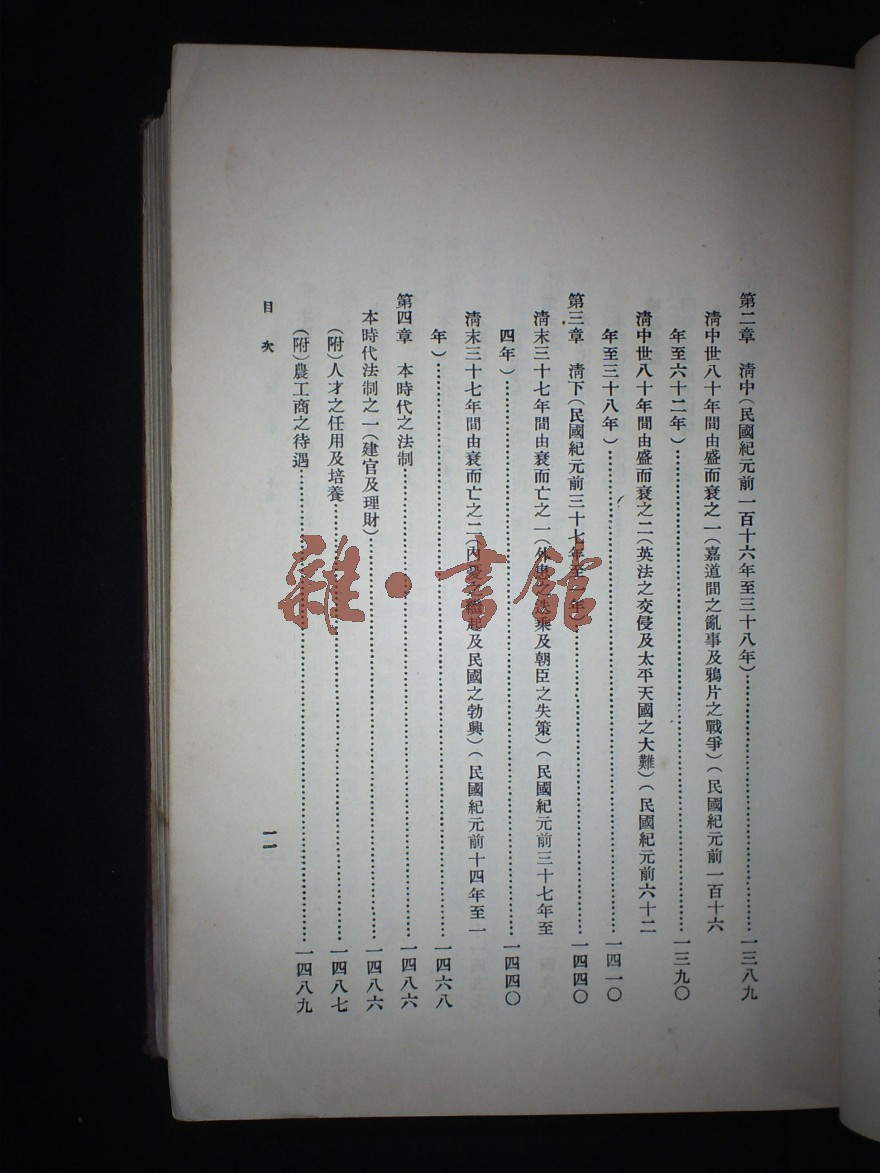 第二章　淸中（民國紀元前一百十六年至三十八年）……一三八九
淸中世八十年間由盛而衰之一（嘉道間之亂事及鴉片之戰爭）（民國紀元前一百十六
年至六十二年）……一三九〇
淸中世八十年間由盛而衰之二（英法之交侵及太平天國之大難）（民國紀元前六十二
年至三十八年）……一四一〇
第三章　淸下（民國紀元前三十七年至一年）……一四四〇
淸末三十七年間由衰而亡之一（外患之迭乘及朝臣之失策）（民國紀元前三十七年至
四年）……一四四〇
淸末三十七年間由衰而亡之二（內憂之起及民國之勃興）（民國紀元前十四年至一
年）……一四六八
第四章　本時代之法制……一四八六
本時代法制之一（建官及理財）……一四八六
（附）人才之任用及培養……一四八七
（附）農工商之待遇……一四八九
目次
一一
雜·書館